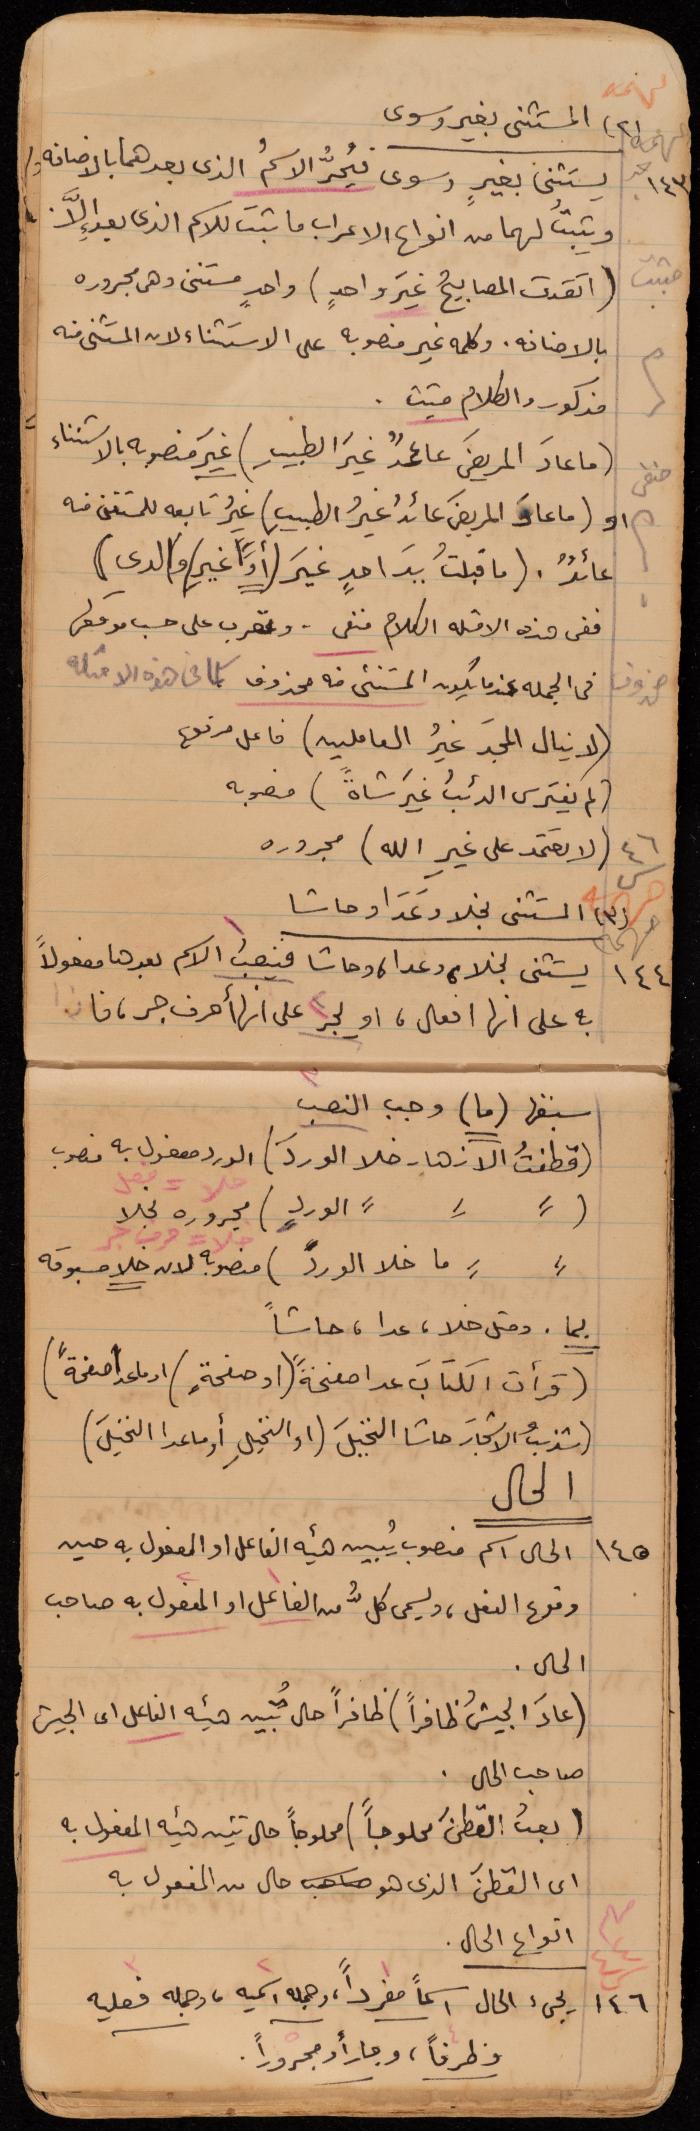 (٢) المستثنى بغير وسوى
١٤٣ يستثنى بغيرٍ وسوى فيُجرُّ الاسمُ الذى بعدهما بالاضافه
ويثبتُ لهما من انواع الاعراب ما ثبتَ للاسم الذى بعد اِلَّا:
(اتقدت المصابيحُ غيرَ واحدٍ) واحدٍ مستثنى وهى مجروره
بالاضافه. وكلمه غير منصوبه على الاستثناء لان المستثنى منه
مذكور والكلام مثبت.
(ما عادَ المريضَ عائدٌ غيرَ الطبيبِ) غيرَ منصوبه بالاستثناء
او (ما عادَ المريضَ عائدٌ غيرُ الطبيبِ) غيرُ تابعه للمستثنى منه
عائدٌ. (ما قبلتُ يدَ احدٍ غيرَ (أو غيرِ) والدى)
ففى هذه الامثله الكلام منفى. وتعرب على حسب موقعها
فى الجمله عندما يكون المستثنى منه محذوف كما فى هذه الامثله
(لا ينال المجدَ غيرُ العاملين) فاعل مرفوع
(لم يفترس الذئبُ غيرَ شاةً) منصوبه
(لا يعتمد على غيرِ الله) مجروره
٤٦
(٣) المستثنى بخلا وعَدَا وحاشا
١٤٤ يستثنى بخلا، وعدا، وحاشا فينصبُ الاسم بعدها مفعولاً
به على انها افعال، او يجر على انها أحرف جر، فاذا
سبقها (ما) وجب النصب
(قطفتُ الازهار خلا الوردَ) الورد مفعول به منصوب
خلا = فعل
( " " " الوردِ) مجروره بخلا
خلا = حرف جر
" " ما خلا الوردَ) منصوبه لان خلا مسبوقه
بما. ومثل خلا، عدا، حاشاً
(قرأت الكتابَ عدا صفحةً (او صفحةٍ) او ماعدا صفحةً)
(شذبتُ الاشجارَ حاشا النخيلَ (او النخيلِ أو ماعدا النخيلَ)
الحال
١٤٥ الحال اسم منصوب يُبين هيئه الفاعل او المفعول به حين
وقوع الفعل، ويسمى كل من الفاعل او المفعول به صاحب
الحال.
(عادَ الجيشُ ظافراً) ظافراً حال تُبين هيئه الفاعل اى الجيش
صاحب الحال.
(بعتُ القطنَ محلوجاً) محلوجاً حال تبين هيئه المفعول به
اى القطنَ الذى هو صاحب حال من المفعول به
انواع الحال.
١٤٦ يجىء الحال اسماً مفرداً، وجمله اسميه، وجمله فعليه
وظرفاً، وجاراً ومجروراً.